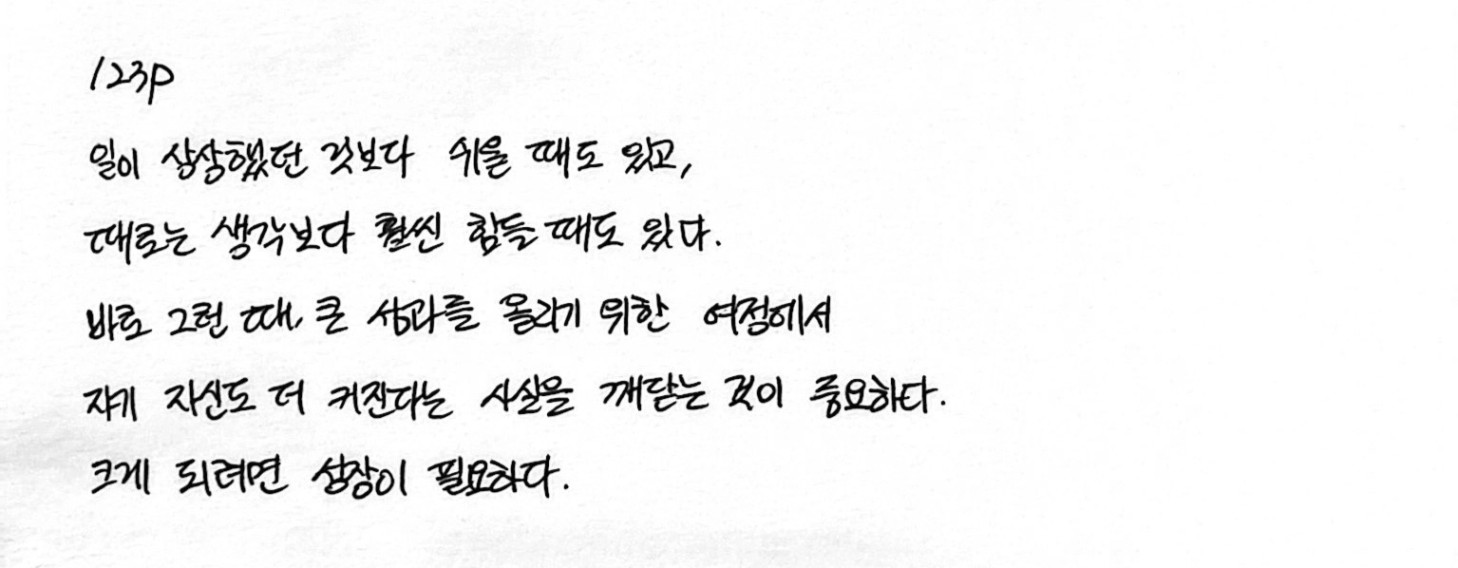 123p
일이 상상했던 것보다 쉬울 때도 있고,
때로는 생각보다 훨씬 힘들 때도 있다.
바로 그런 때, 큰 성과를 올리기 위한 여정에서
자기 자신도 더 커진다는 사실을 깨닫는 것이 중요하다.
크게 되려면 성장이 필요하다.